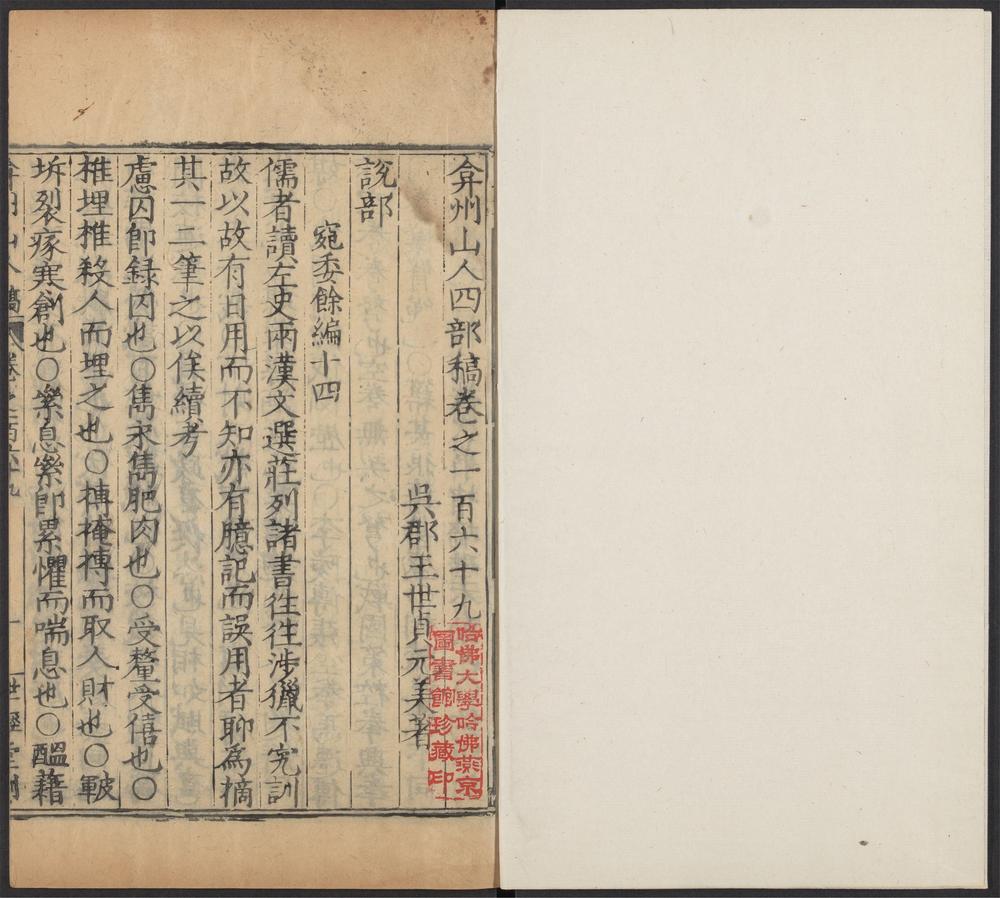 弇州山人四部稿卷之一百六十九
吳郡王世貞元美著
說部
宛委餘編十四
儒者讀左史兩漢文選莊列諸書徃徃涉獵不究訓
故以故有日用而不知亦有臆記而誤用者聊爲摘
其一二筆之以俟續考
慮囚卽録囚也○雋永雋肥肉也○受釐受僖也○
椎埋椎殺人而埋之也○摶掩摶而取人財也○皸
坼裂瘃寒創也○絫息絫卽累懼而喘息也○醞藉
哈佛大學哈佛燕京
圖書館珍藏印
弇州山人稿 卷之一百六十九 一 世經堂刻